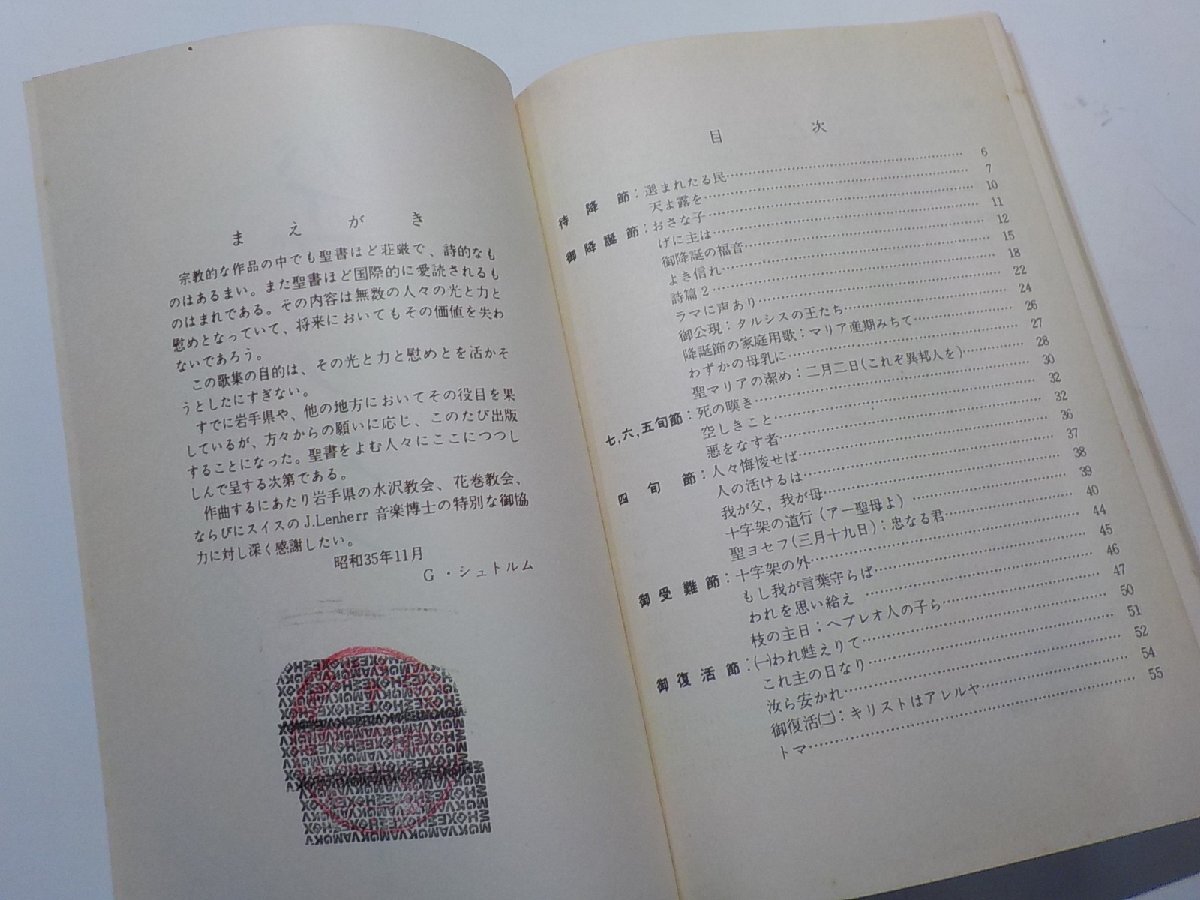 まえがき
宗教的な作品の中でも聖書ほど荘厳で、詩的なも
のはあるまい。また聖書ほど国際的に愛読されるも
のはまれである。その内容は無数の人々の光と力と
慰めとなっていて、将来においてもその価値を失わ
ないであろう。
この歌集の目的は、その光と力と慰めとを活かそ
うとしたにすぎない。
すでに岩手県や、他の地方においてその役目を果
しているが、方々からの願いに応じ、このたび出版
することになった。聖書をよむ人々にここにつつし
しんで呈する次第である。
作曲するにあたり岩手県の水沢教会、花巻教会、
ならびにスイスのJ.Lenherr 音楽博士の特別な御協
力に対し深く感謝したい。
昭和35年11月
G・シュトルム
目次
待降節：選まれたる民…………6
天よ露を…………7
御降誕節：おさな子…………10
げに主は…………11
御降誕の福音…………12
よき信れ…………15
詩篇2…………18
ラマに声あり…………22
御公現：タルシスの王たち…………24
降誕節の家庭用歌：マリア産期みちて…………26
わずかの母乳に…………27
聖マリアの潔め：二月二日（これぞ異邦人を）…………28
七,六,五旬節：死の嘆き…………30
空しきこと…………32
悪をなす者…………32
四旬節：人々悔悛せば…………36
人の活けるは…………37
我が父，我が母…………38
十字架の道行（アー聖母よ）…………39
聖ヨセフ（三月十九日）：忠なる君…………40
御受難節：十字架の外…………44
もし我が言葉守らば…………45
われを思い給え…………46
枝の主日：ヘブレオ人の子ら…………47
御復活節：㈠われ甦えりて…………50
これ主の日なり…………51
汝ら安かれ…………52
御復活㈡：キリストはアレルヤ…………54
トマ…………55